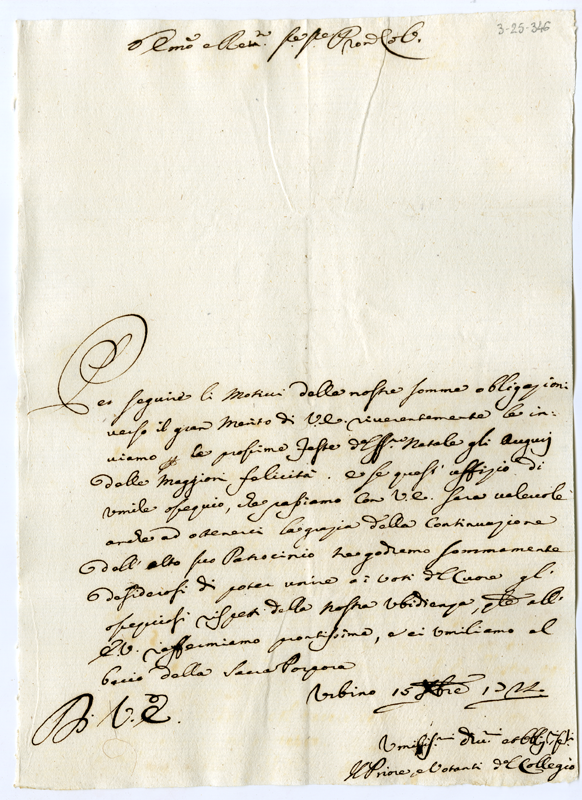 3-25-346
Emo e Rev. Pron Col.
Per seguire li Motivi delle nostre somme obligazioni
verso il gran Merito di V.E. riverentemente le in-
viamo le prossime feste del Natale gli Augurij
delle Maggiori felicità. e se questi uffizio di
umile ossequio, che passiamo con V.E. sarà valevole
anche ad ottenerci la grazia della Continuazione
dell' alto suo Patrocinio ne godremo sommamente
desiderosi di poter unire ai voti del Cuore gl'
ossequiosi rispetti della nostra Ubidienza, all'
E.V. raffermiamo prontissima, e ci umiliamo al
bacio della Sacra Porpora
Urbino 15 Xbre
Di V. E.
Umiliss. et
Il Priore, e Votanti del Collegio